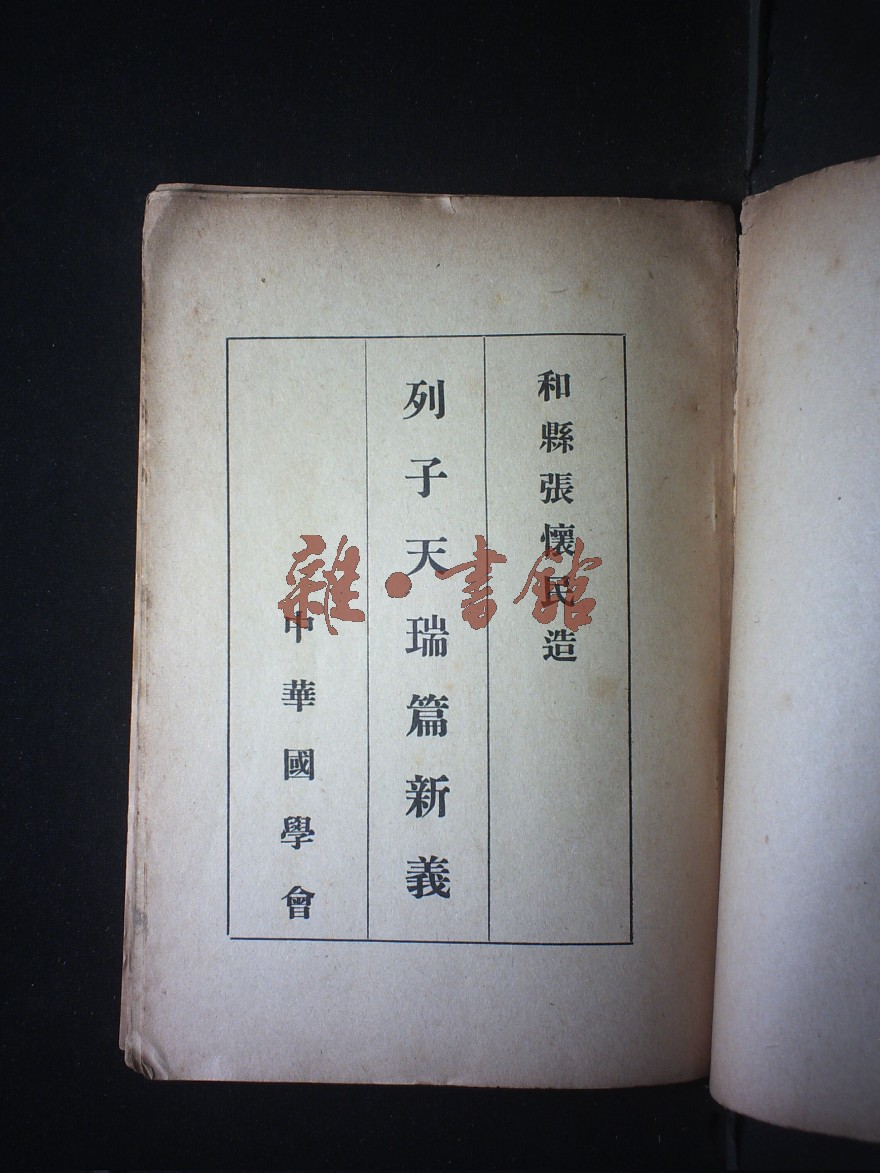 和縣張懷民造
列子天瑞篇新義
中華國學會
雜·書館